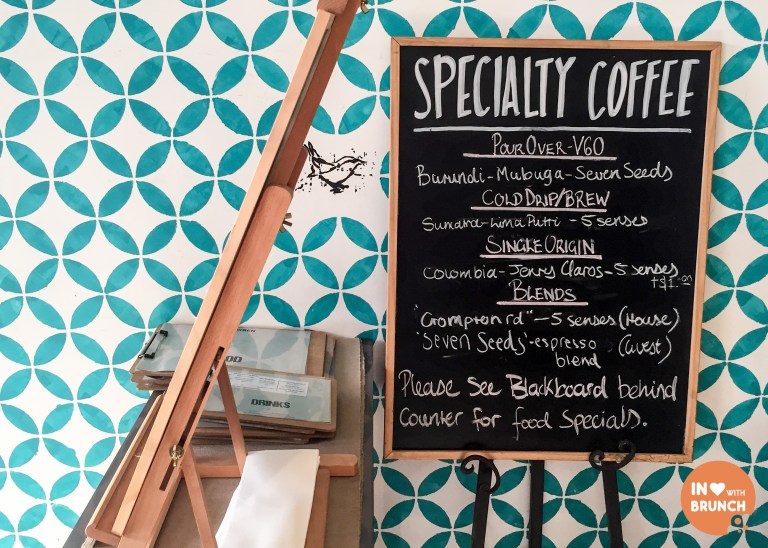 SPECIALTY COFFEE
POUR OVER-V60
Burundi-Mubuga-Seven Seeds
COLD DRIP/BREW
Sumatra-Lima Putri-5 senses
SINGLE ORIGIN
Colombia-Jenry Claros-5 senses
+$1.00
BLENDS
"Crompton rd"-5 senses (House)
'Seven Seeds'-espresso (Guest)
blend
Please See Blackboard behind
Counter for food Specials.
DRINKS
IN ♥ WITH
BRUNCH